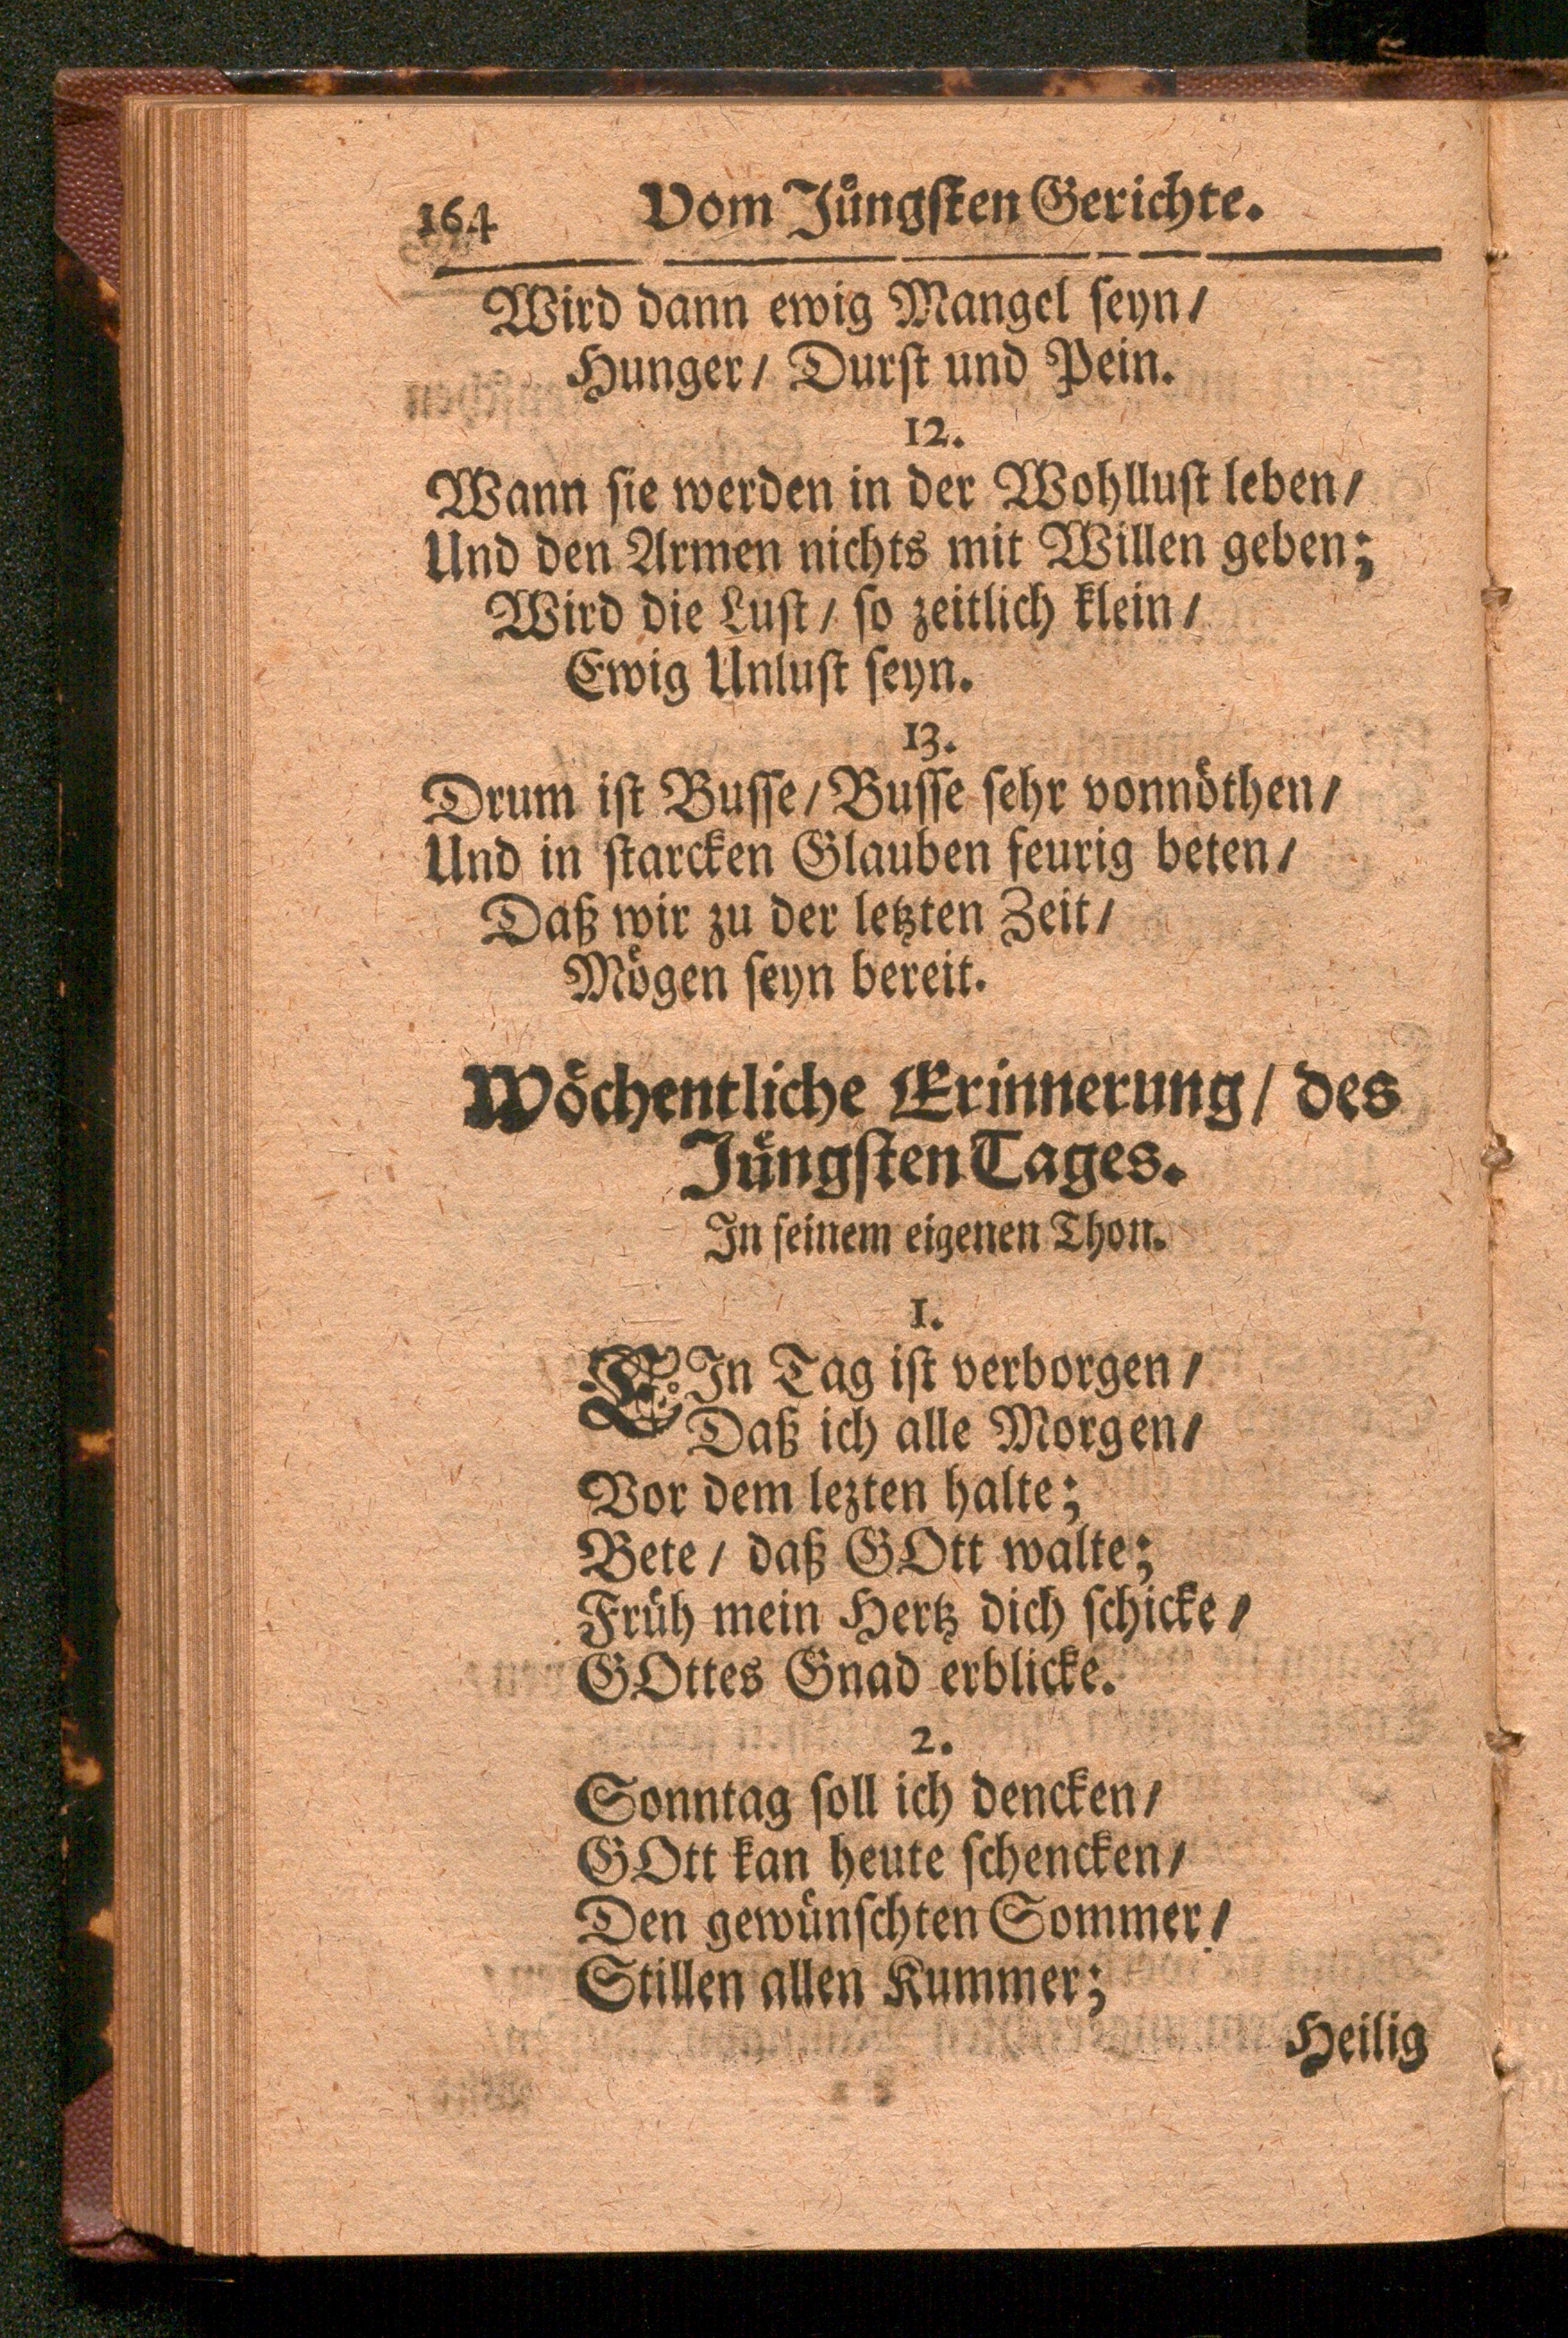 164 Vom Jüngsten Gerichte.
Wird dann ewig Mangel seyn/
Hunger/ Durst und Pein.
12.
Wann sie werden in der Wohllust leben/
Und den Armen nichts mit Willen geben;
Wird die Lust/ so zeitlich klein/
Ewig Unlust seyn.
13.
Drum ist Busse/ Busse sehr vonnöthen/
Und in starcken Glauben feurig beten/
Daß wir zu der letzten Zeit/
Mögen seyn bereit.
Wöchentliche Erinnerung/ des
Jüngsten Tages.
In seinem eigenen Thon.
1.
EIn Tag ist verborgen/
Daß ich alle Morgen/
Vor dem lezten halte;
Bete/ daß GOtt walte;
Früh mein Hertz dich schicke/
GOttes Gnad erblicke.
2.
Sonntag soll ich dencken/
GOtt kan heute schencken/
Den gewünschten Sommer/
Stillen allen Kummer;
Heilig